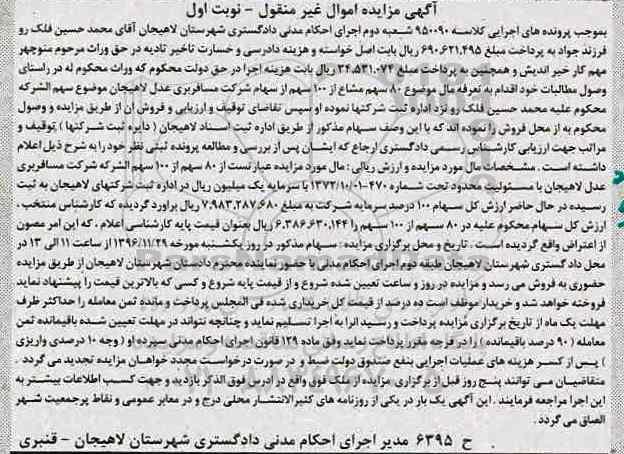 آگهی مزایده اموال غیر منقول - نوبت اول
بموجب پرونده های اجرایی کلاسه ۹۵۰۰۹۰ شعبه دوم اجرای احکام مدنی دادگستری شهرستان لاهیجان آقای محمد حسین فلک رو
فرزند جواد به پرداخت مبلغ ۶۹۰.۶۲۱.۴۹۵ ریال بابت اصل خواسته و هزینه دادرسی و خسارت تاخیر تادیه در حق وراث مرحوم منوچهر
مهم کار خیر اندیش و همچنین به پرداخت مبلغ ۳۴.۵۳۱.۰۷۴ ریال بابت هزینه اجرا در حق دولت محکوم که وراث محکوم له در راستای
وصول مطالبات خود اقدام به تعرفه مال موضوع ۸۰ سهم مشاع از ۱۰۰ سهم از سهام شرکت مسافربری عدل لاهیجان موضوع سهم الشرکه
محکوم علیه محمد حسین فلک رو نزد اداره ثبت شرکتها نموده او سپس تقاضای توقیف و ارزیابی و فروش آن از طریق مزایده و وصول
محکوم به از محل فروش را نموده اند که با این وصف سهام مذکور از طریق اداره ثبت اسناد لاهیجان ( دایره ثبت شرکتها ) توقیف و
مراتب جهت ارزیابی کارشناس رسمی دادگستری ارجاع که ایشان پس از بررسی و مطالعه پرونده ثبتی نظر خود را به شرح ذیل اعلام
داشته است . مشخصات مال مورد مزایده و ارزش ریالی : مال مورد مزایده عبارتست از ۸۰ سهم از ۱۰۰ سهم الشرکه شرکت مسافربری
عدل لاهیجان با مسئولیت محدود تحت شماره ۴۷۰-۱۳۷۲/۱۰/۰۱ با سرمایه یک میلیون ریال در اداره ثبت شرکتهای لاهیجان به ثبت
رسیده در حال حاضر ارزش کل سهام ۱۰۰ درصد سرمایه شرکت به مبلغ ۷.۹۸۳.۲۸۷.۶۸۰ ریال براورد گردیده که کارشناس منتخب ،
ارزش کل سهام محکوم علیه در ۸۰ سهم از ۱۰۰ سهم را ۶.۳۸۶.۶۳۰.۱۴۴ ریال بعنوان قیمت پایه کارشناسی اعلام ، که این امر مصون
از اعتراض واقع گردیده است . تاریخ و محل برگزاری مزایده : سهام مذکور در روز یکشنبه مورخه ۱۳۹۶/۱۱/۲۹ از ساعت ۱۱ الی ۱۳ در
محل دادگستری شهرستان لاهیجان طبقه دوم اجرای احکام مدنی با حضور نماینده محترم دادستان شهرستان لاهیجان از طریق مزایده
حضوری به فروش می رسد و مزایده در روز و ساعت تعیین شده شروع و از قیمت پایه شروع و کسی که بالاترین قیمت را پیشنهاد نماید
فروخته خواهد شد و خریدار موظف است ده درصد از قیمت کل خریداری شده فی المجلس پرداخت و مانده ثمن معامله را حداکثر ظرف
مهلت یک ماه از تاریخ برگزاری مزایده پرداخت و رسید انرا به اجرا تسلیم نماید و چنانچه نتواند در مهلت تعیین شده باقیمانده ثمن
معامله ( ۹۰ درصد باقیمانده ) را در فرجه مقرر پرداخت نماید وفق ماده ۱۲۹ قانون اجرای احکام مدنی سپرده او ( وجه ۱۰ درصدی واریزی
) پس از کسر هزینه های عملیات اجرایی بنفع صندوق دولت ضبط و در صورت درخواست مجدد خواهان مزایده تجدید می گردد .
متقاضیان می توانند پنج روز قبل از برگزاری مزایده از ملک فوق واقع در ادرس فوق الذکر بازدید و جهت کسب اطلاعات بیشتر به
این اجرا مراجعه فرمایند . این آگهی یک بار در یکی از روزنامه های کثیرالانتشار محلی درج و در معابر عمومی و نقاط پرجمعیت شهر
الصاق می گردد .
ح ۶۳۹۵ مدیر اجرای احکام مدنی دادگستری شهرستان لاهیجان - قنبری